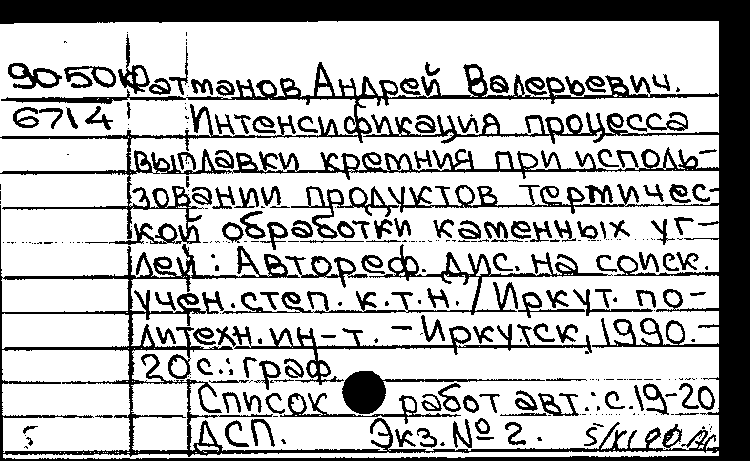 9050к Ратманов, Андрей Валерьевич.
6714 Интенсификация процесса
выплавки кремния при исполь-
зовании продуктов термичес-
кой обработки каменных уг-
лей : Автореф. дис. на соиск.
учен. степ. к.т.н. / Иркут. по-
литехн. ин-т. - Иркутск, 1990. -
20 с. : граф.
Список работ авт.: с. 19-20
5 ДСП. Экз. № 2. 5/XI 90.